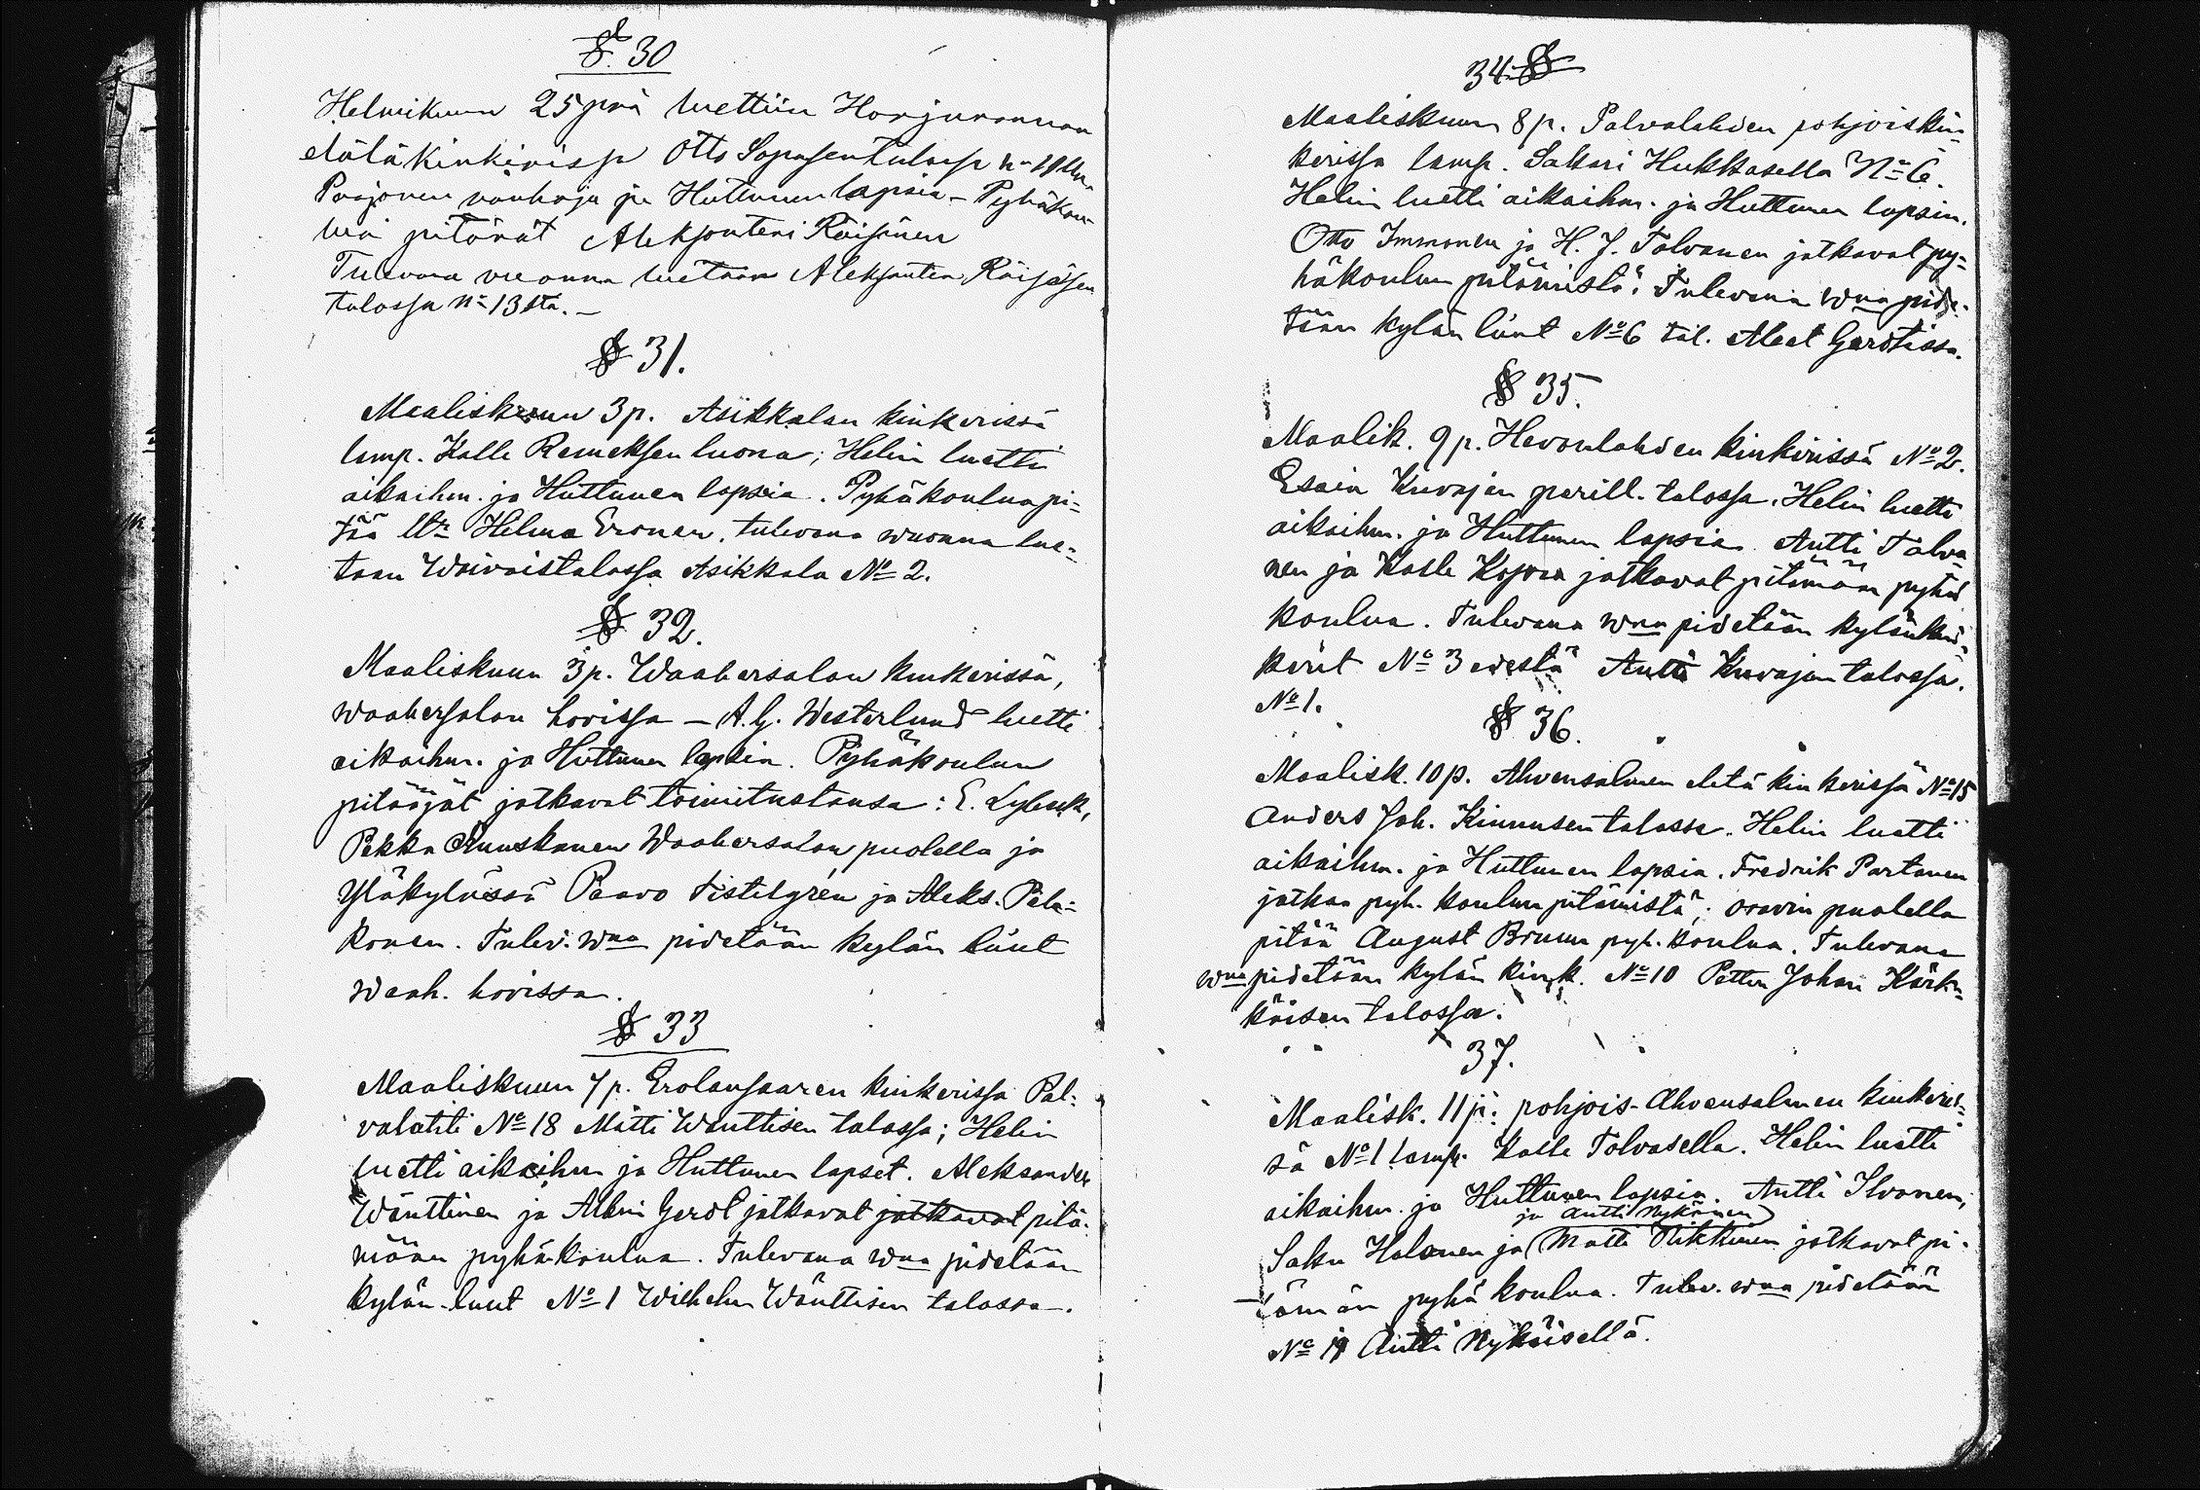 § 30
Helmikuun 25 pnä luettiin Harjurannan
etelä kinkirissä Otto Sapasen talossa n:
Paajonen vanhoja ja Huttunen lapsia - Pyhäkou-
lua pitävät Aleksanteri Räisänen
Tulevana vuonna luetaan Aleksanteri Räisäsen
talossa N:o 13sta. -
§ 31.
Maaliskuun 3 p. Asikkalan kinkerissä
lamp. Kalle Remeksen luona; Helin luetti
aikaihm. ja Huttunen lapsia. Pyhäkoulua pi=
tää Helma Eronen. tulevana wuonna lue=
taan Waivaistalossa Asikkala No 2.
§ 32.
Maaliskuun 3 p. Waahersalon kinkerissä,
waahersalon hovissa - A. G. Westerlund luetti
aikaihm. ja Huttunen lapsia. Pyhäkoulun
pitääjät jatkavat toimitustansa: E. Lybeck,
Pekka Ruuskanen Waahersalon puolella ja
Yläkylässä Paavo Tistelgrén ja Aleks. Pela=
konen. Tulev. wna pidetään kylän luut
Waah. hovissa.
§ 33
Maaliskuun 7 p. Erolansaaren kinkerissä Pal=
valahti No 18 Matti Wänttisen talossa; Helin
luetti aikaihm ja Huttunen lapset. Aleksander
Wänttinen ja Albin Gerdt jatkavat jatkavat pitä=
mään pyhäkoulua. Tulevana wna pidetään
kylän-luut No 1 Wilhelm Wänttisen talossa.
34 §
Maaliskuun 8 p. Palvalahden pohjoiskin=
kerissä lamp. Sakari Hukkasella No 6.
Helin luetti aikaihm. ja Huttunen lapsia.
Otto Immonen ja H. J. Tolvanen jatkavat py=
häkoulun pitämistä. Tulevana wna pide=
tään kylän luut No 6 til. Gerdtissa.
§ 35.
Maalisk. 9 p. Hevonlahden kinkirissä No 2.
Esain Kuvajan perill. talossa. Helin luetti
aikaihm. ja Huttunen lapsia. Antti Tolva
nen ja Kalle jatkavat pitämään pyhä
koulua. Tulevana wna pidetään kylänkin=
kerit No 3 edestä Antti Kuvajan talossa.
No 1.
§ 36.
Maalisk. 10 p. Ahvensalmen etelä kinkerissä No 15
Anders Joh. Kinnusen talossa. Helin luetti
aikaihm. ja Huttunen lapsia. Fredrik Partanen
jatkaa pyh. koulun pitämistä; oravin puolella
pitää August Bruun pyh. koulua. Tulevana
wna pidetään kylän kink. No 10 Petter Johan Kärk=
käisen talossa.
37.
Maalisk. 11 p. pohjois-Ahvensalmen kinkeris=
sä No 1 lamp. Kalle Tolvasella. Helin luetti
aikaihm. ja Huttunen lapsia. Antti Ilvonen,
ja Antti Nykänen
Saku Halonen ja Matti Nikkinen jatkavat pi=
tämän pyhä koulua. Tulev. wna pidetään
No 19 Antti Nykäisellä.